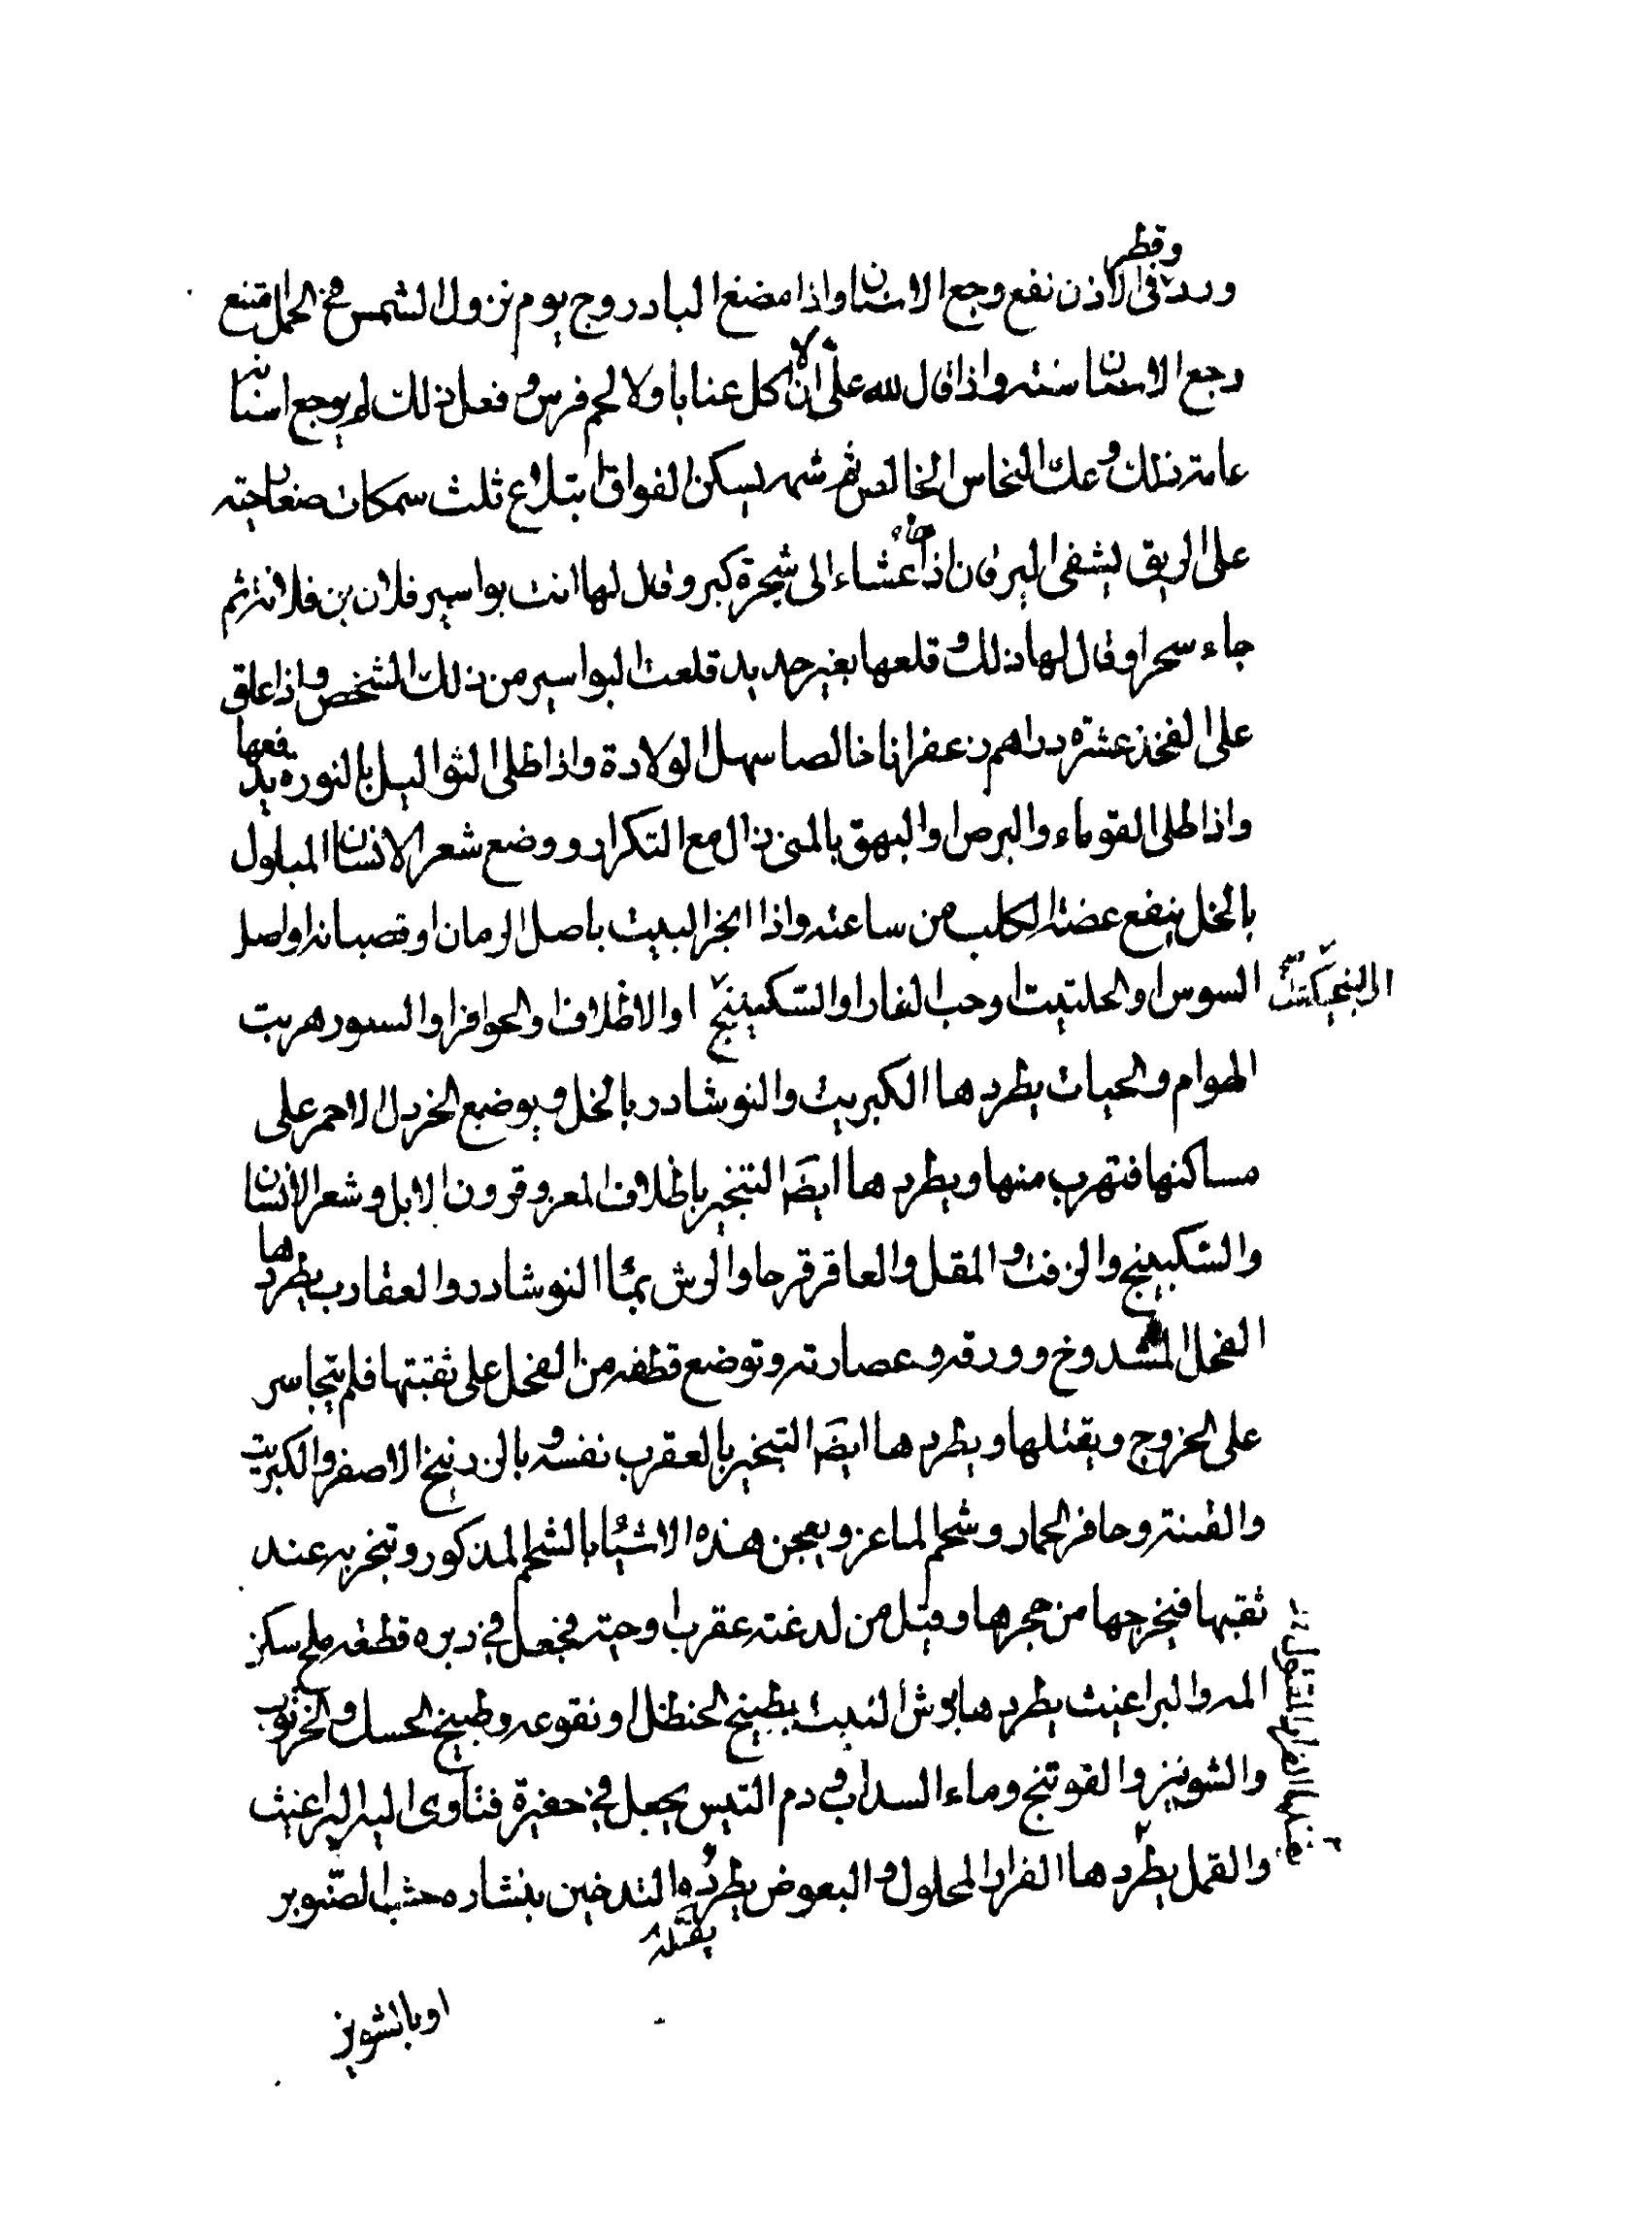 ورد وقطر في الاذن نفع وجع الاسنان واذا مضغ البادروج يوم نزول الشمس في الحمل امتنع
وجع الاسنان سنته واذا قال لله علي ان لا اكل عنابا ولا لحم فرس وفعل ذلك لم يوجع اسنانه
عامة ذلك وعلك النحاس الخالص ثمر شهر يسكن الفواق ابتلاع ثلث سمكات صغار حية
على الريق يشفى اليرقان اذا جاء عشاء الى شجرة كبر وقال لها انت بواسير فلان بن فلانة ثم
جاء سحرا وقال لها ذلك وقلعها بغير حديد قلعت البواسير من ذلك الشخص واذا علق
على الفخذ عشره دراهم زعفرانا خالصا سهل الولادة واذا طلى الثواليل بالنوره يدفعها
واذا طلى القوباء والبرص او البهق بالمنى زال مع التكرار ووضع شعر الانسان المبلول
بالخل ينفع عضة الكلب من ساعته واذا ابخر البيت باصل الرمان او قصبانه او اصل
السوس او الحلتيت او حب الغار او السكبينج او الاظلاف او الحوافر او السبور هربت
او البنجنكشت
الهوام والحيات يطردها الكبريت والنوشادر بالخل ويوضع الخردل الاحمر على
مساكنها فتهرب منها ويطردها ايضا التبخير باظلاف المعز وقرون الابل وشعر الانسان
والسكبينج والزفت والمقل والعاقرقرحا والرش بماء النوشادر والعقارب يطردها
الفجل المشدوخ وورقه وعصارته وتوضع قطعه من الفجل على ثقبتها فلم يتجاسر
على الخروج ويقتلها ويطردها ايضا التبخير بالعقرب نفسه وبالزرنيخ الاصفر والكبريت
والقنة وحافر الحمار وشحم الماعز ويعجن هذه الاشياء بالشحم المذكور وتبخر به عند
ثقبها فيخرجها من جحرها وقيل من لدغته عقرب او حية فجعل في دبره قطعه ملح سكن
المه والبراغيث يطردها برش البيت بطبيخ الحنظل او نقوعه وطبيخ الحسك والخرنوب
والشونيز والفوتنج وماء السداب ودم التيس يجعل في حفيرة فتاوى اليه البراغيث
والقمل يطردها الفرار المحلول والبعوض يطرده التدخين بنشاره خشب الصنوبر
يقتله
اوبالشونيز